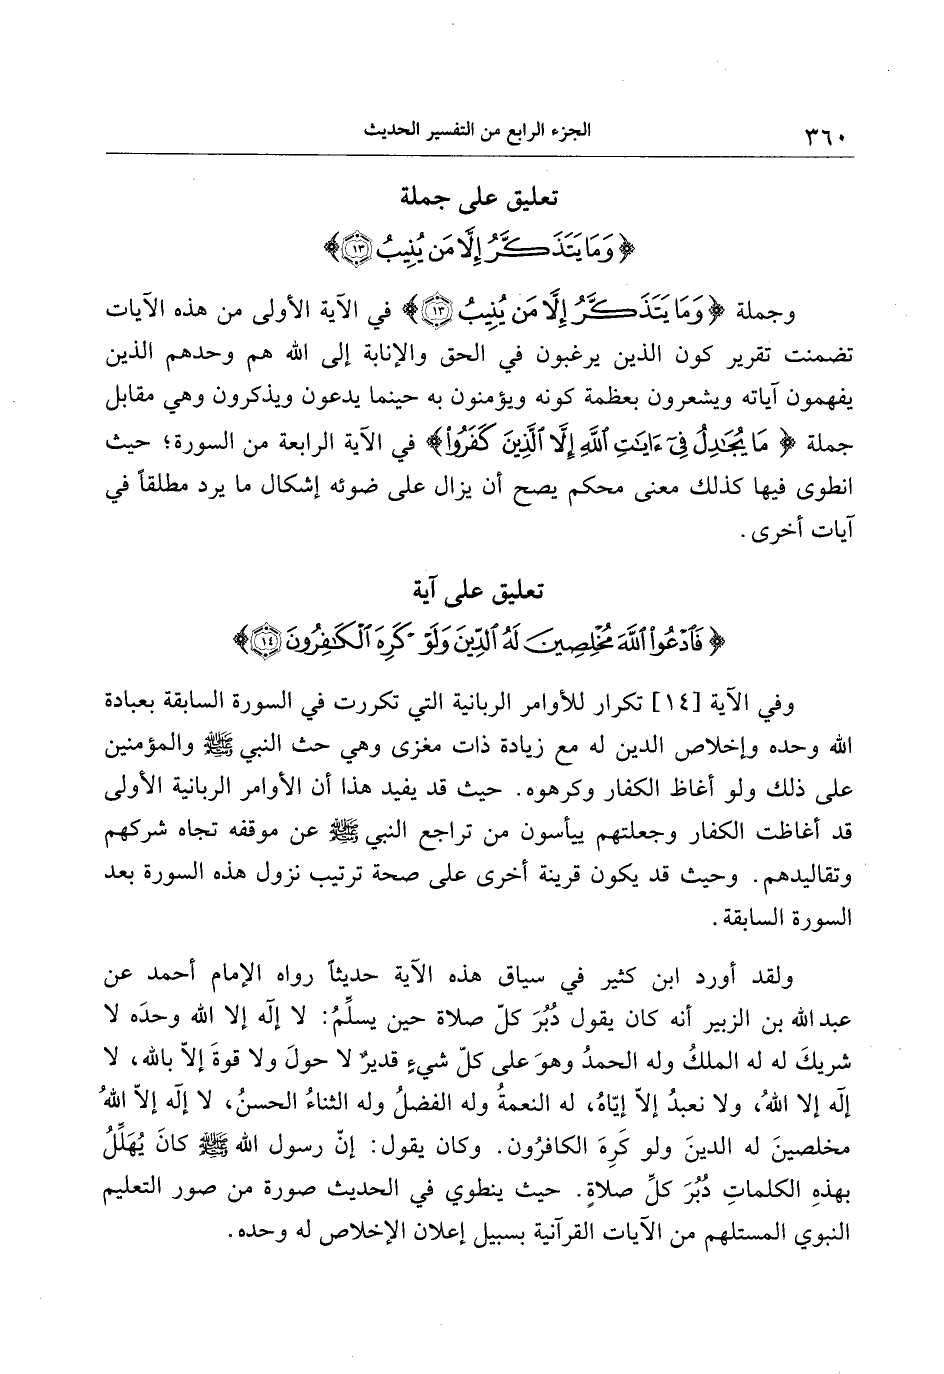 ٣٦٠ الجزء الرابع من التفسير الحديث
تعليق على جملة
﴿ وَمَا يَتَذَكَّرُ إِلَّا مَن يُنِيبُ ١٣ ﴾
وجملة ﴿ وَمَا يَتَذَكَّرُ إِلَّا مَن يُنِيبُ ١٣ ﴾ في الآية الأولى من هذه الآيات
تضمنت تقرير كون الذين يرغبون في الحق والإنابة إلى الله هم وحدهم الذين
يفهمون آياته ويشعرون بعظمة كونه ويؤمنون به حينما يدعون ويذكرون وهي مقابل
جملة ﴿ مَا يُجَٰدِلُ فِىٓ ءَايَٰتِ ٱللَّهِ إِلَّا ٱلَّذِينَ كَفَرُوا۟ ﴾ في الآية الرابعة من السورة؛ حيث
انطوى فيها كذلك معنى محكم يصح أن يزال على ضوئه إشكال ما يرد مطلقاً في
آيات أخرى .
تعليق على آية
﴿ فَٱدْعُوا۟ ٱللَّهَ مُخْلِصِينَ لَهُ ٱلدِّينَ وَلَوْ كَرِهَ ٱلْكَٰفِرُونَ ١٤ ﴾
وفي الآية [١٤] تكرار للأوامر الربانية التي تكررت في السورة السابقة بعبادة
الله وحده وإخلاص الدين له مع زيادة ذات مغزى وهي حث النبي ﷺ والمؤمنين
على ذلك ولو أغاظ الكفار وكرهوه . حيث قد يفيد هذا أن الأوامر الربانية الأولى
قد أغاظت الكفار وجعلتهم ييأسون من تراجع النبي ﷺ عن موقفه تجاه شركهم
وتقاليدهم . وحيث قد يكون قرينة أخرى على صحة ترتيب نزول هذه السورة بعد
السورة السابقة .
ولقد أورد ابن كثير في سياق هذه الآية حديثاً رواه الإمام أحمد عن
عبد الله بن الزبير أنه كان يقول دُبُرَ كلّ صلاة حين يسلِّمُ: لا إلٰه إلا الله وحدَه لا
شريكَ له له الملكُ وله الحمدُ وهوَ على كلّ شيءٍ قديرٌ لا حولَ ولا قوةَ إلاّ بالله، لا
إلٰه إلا اللهُ، ولا نعبدُ إلاّ إيّاهُ، له النعمةُ وله الفضلُ وله الثناءُ الحسنُ، لا إلٰه إلاّ اللهُ
مخلصينَ له الدينَ ولو كَرِهَ الكافرُون . وكان يقول: إنّ رسول الله ﷺ كانَ يُهَلِّلُ
بهذهِ الكلماتِ دُبُرَ كلِّ صلاةٍ . حيث ينطوي في الحديث صورة من صور التعليم
النبوي المستلهم من الآيات القرآنية بسبيل إعلان الإخلاص له وحده .